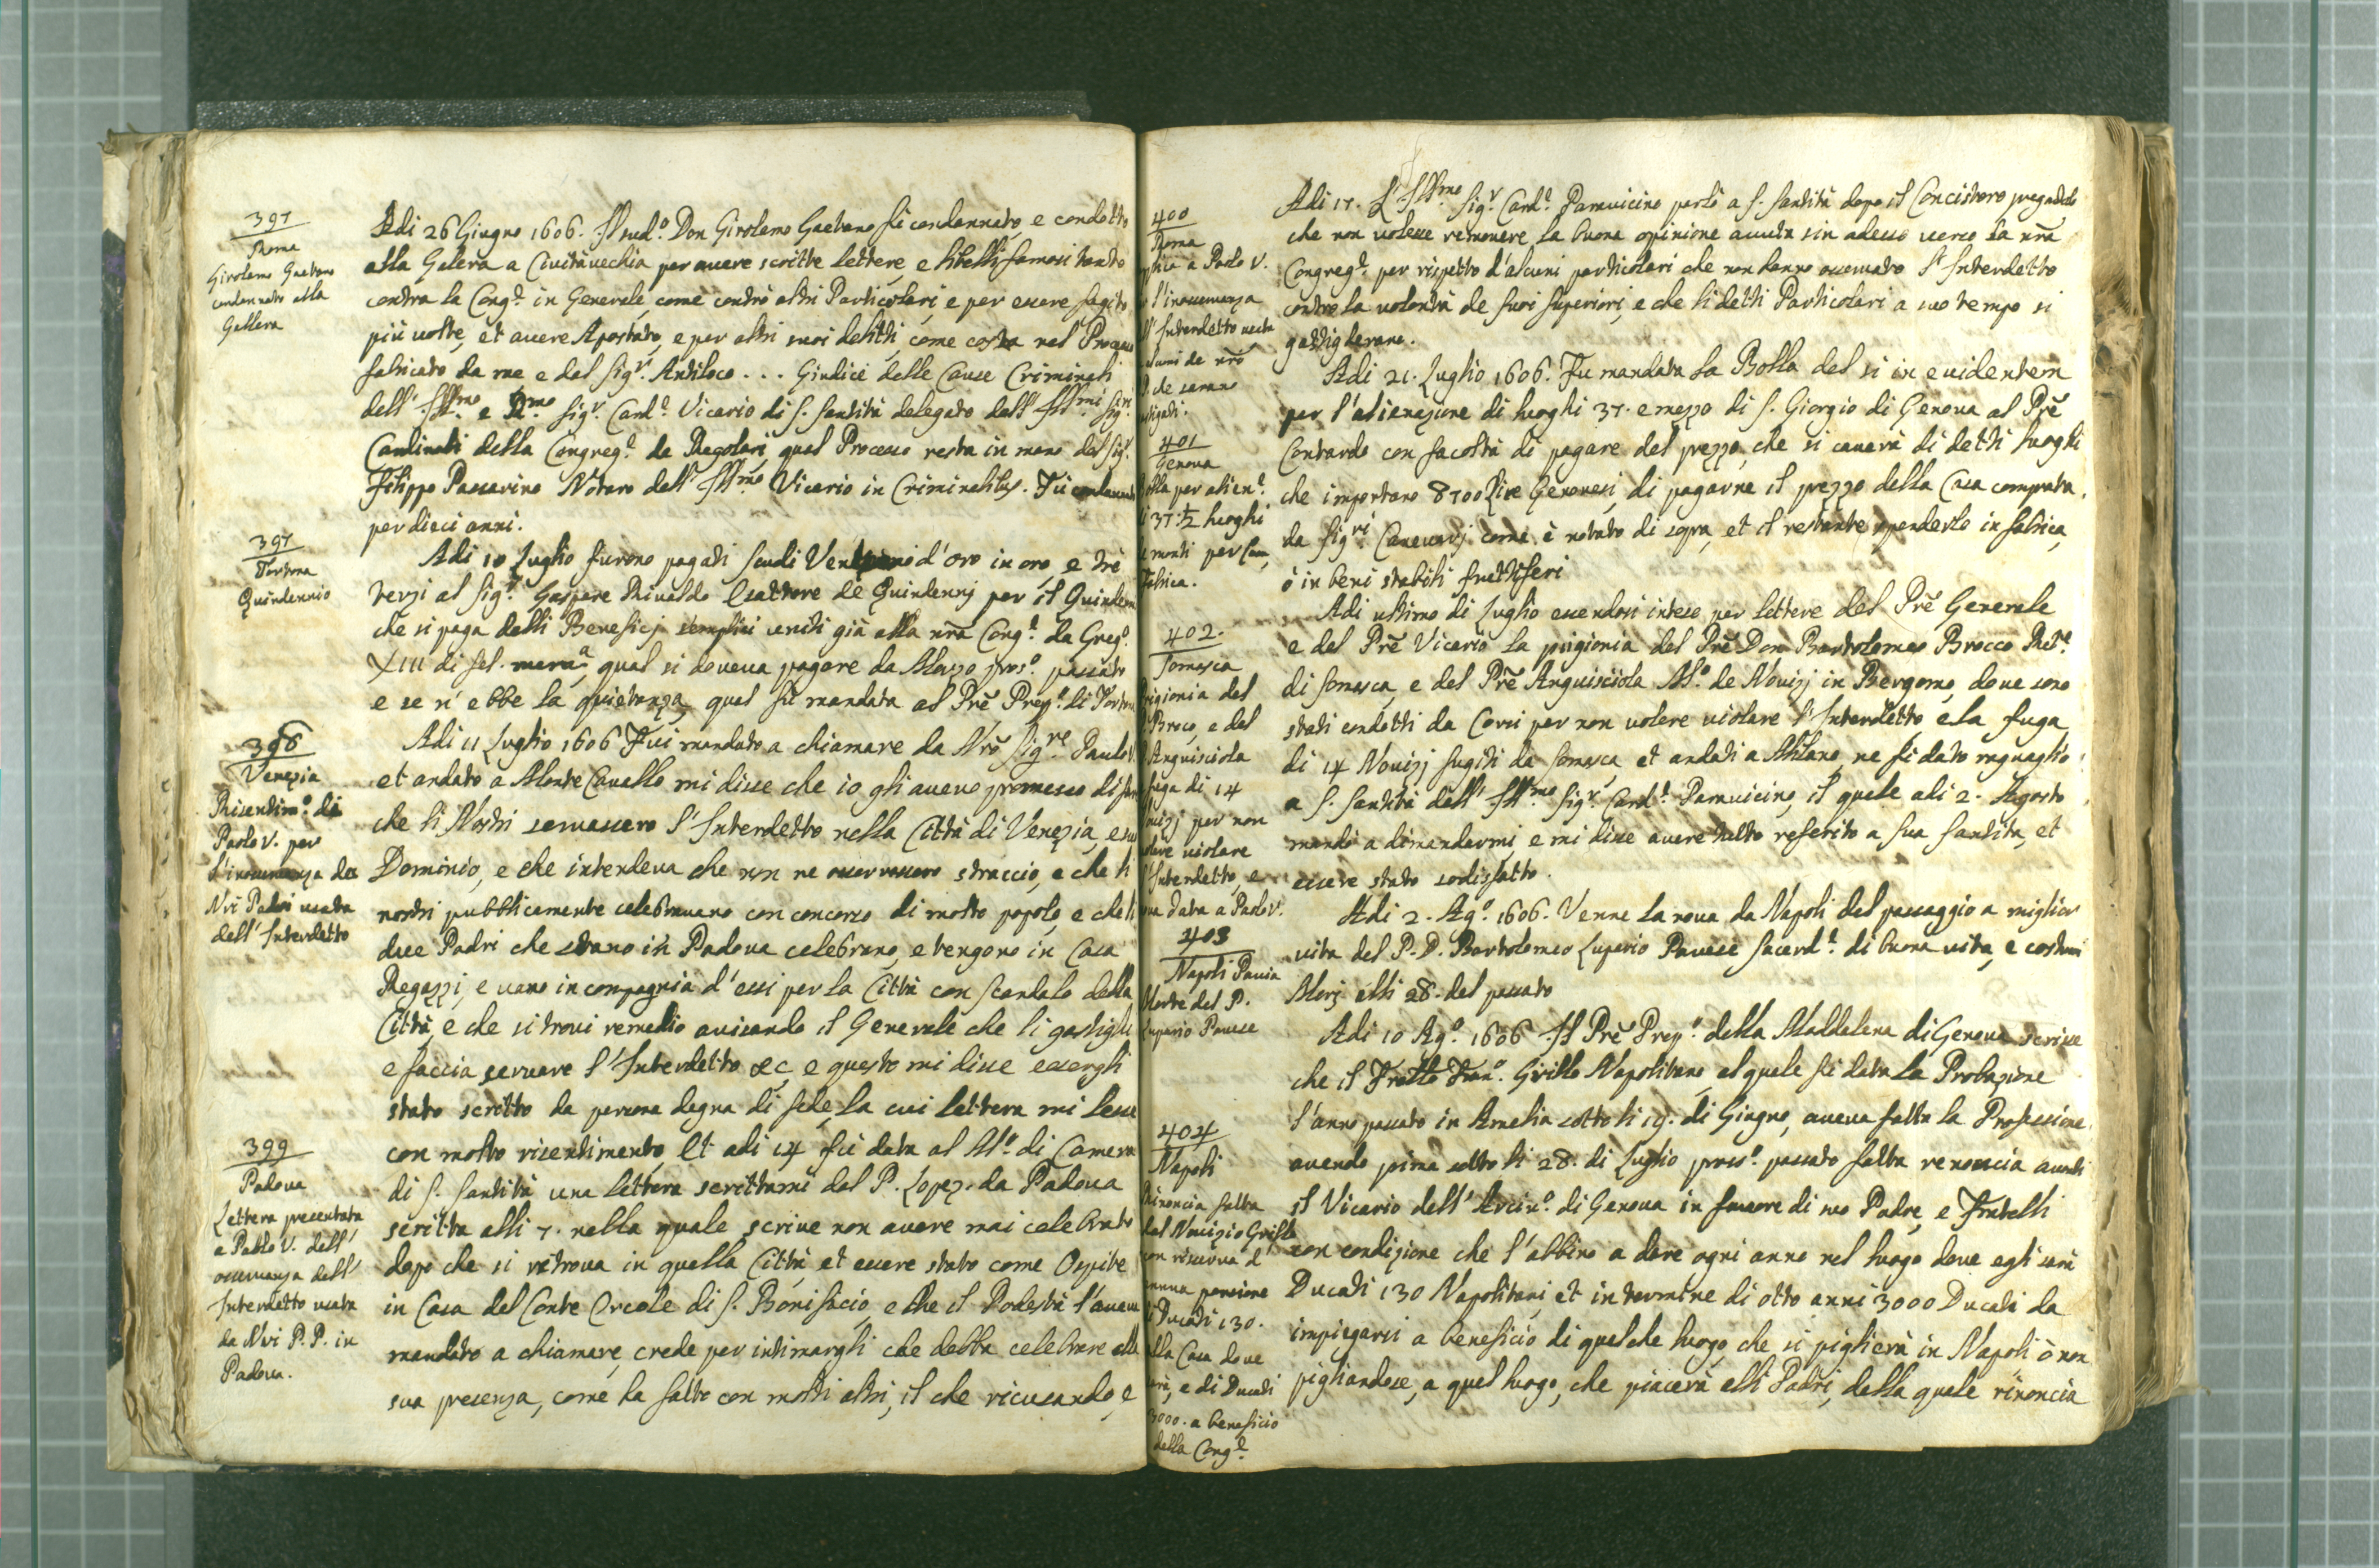 397
Roma
Girolamo Gaetano
condannato alla
Gallera
Adi 26 Giugno 1606. Il sud.º Don Girolamo Gaetano fù condannato, e condotto
alla Galera a Civitàvechia per avere scritte lettere, e libelli famosi tanto
contra la Cong.e in Generale, come contrò altri Particolari, e per essere fugito
più volte, et avere Apostato, e per altri suoi delitti, come costa nel Processo
fabricato da me e dal Sig.r Antiloco . . . Giudice delle Cause Criminali
dell' Ill.mo e R.mo Sig.r Card.e Vicario di S. Santità delegato dall' Ill.mi Sig.ri
Cardinali della Congreg.e de Regolari, qual Processo resta in mano del Sig.r
Filippo Passarino Notaro dell' Ill.mo Vicario in Criminalibus. Fù condannato
per dieci anni.
397
Tortona
Quindennio
Adi 10 Luglio furono pagati scudi d'oro in oro, e trè
terzi al Sig.r Gaspare Rivaldo Esattore de Quindennj per il Quinden
che si paga delli Beneficj semplici uniti già alla nrã Cong.e da Greg.º
XIII di fel. mem.a, qual si doveva pagare da Marzo pros.º passato
e se n'ebbe la quietanza, qual fù mandata al Prẽ Prep.º di Tortona
398
Venezia
Risentim.º di
Paolo V. per
l'inosservanza de
Nri Padri usata
dell' Interdetto
Adi 11 Luglio 1606 Fui mandato a chiamare da Nrõ Sig.re Paulo V.
et andato a Monte Cavallo mi disse che io gli avevo promesso di fare
che li Nostri servassero l'Interdetto nella Città di Venezia, e suo
Dominio, e che intendeva che non ne osservassero straccio, e che li
nostri pubblicamente celebravano con concorso di molto popolo, e che li
due Padri che stano in Padova celebrano, e tengono in Casa
Regazzi, e vano in compagnia d'essi per la Città con scandalo della
Città, e che si trovi remedio avisando il Generale che li gastighi
e faccia servare l'Interdetto &c, e questo mi disse essergli
stato scritto da persona degna di fede, la cui lettera mi lesse
con molto risentimento, Et adi 14 fù data al M.º di Camera
399
Padova
Lettera presentata
a Paolo V. dell'
osservanza dell'
Interdetto usata
da Nri P.P. in
Padova.
di S. Santità una lettera scrittami dal P. Lopez. da Padova
scritta alli 7. nella quale scrive non avere mai celebrato
dopo che si ritrova in quella Città, et essere stato come Ospite
in Casa del Conte Ercole di S. Bonifacio, e che il Podestà l'aveva
mandato a chiamare, crede per intimargli che debba celebrare alla
sua presenza, come ha fatto con molti altri, il che ricusando, e
400
Roma
a Paolo V.
l'inosservanza
Interdetto usata
de nrõ
che saranno
Adi 17. L'Ill.mo Sig.r Card.e Paravicino parlò a S. Santità dopo il Concistoro pregandolo
che non volesse removere la buona opinione avuta sin adesso verso la nrã
Congreg.e per rispetto d'alcuni particolari che non hanno osservato l'Interdetto
contro la volontà de suoi Superiori, e che li detti Particolari a suo tempo si
gastigherano.
401
Genova
per alien.e
37. 1/2 luoghi
monti per
fabrica.
Adi 21. Luglio 1606. Fu mandata la Bolla del si in evidentem
per l'alienazione di luoghi 37. e mezzo di S. Giorgio di Genova al Prẽ
Contardo con facoltà di pagare del prezzo, che si caverà di detti luoghi
che importano 8700 Lire Genovesi, di pagarne il prezzo della Casa comprata
da Sig.ri come è notato di sopra, et il restante spenderlo in fabrica,
ò in beni stabili fruttiferi
402.
Somasca
prigionia del
Broco, e del
Anguisciola
fuga di 14
per non
violare
Interdetto, e
data a Paolo V.
Adi ultimo di Luglio essendosi inteso per lettere del Prẽ Generale
e del Prẽ Vicario la prigionia del Prẽ Don Bartolomeo Brocco Ret.e
di Somasca, e del Prẽ Anguisciola M.º de Novizj in Bergomo, dove sono
stati condotti da Corsi per non volere violare l'Interdetto, e la fuga
di 14 Novizj fugiti da Somasca, et andati a Milano, ne fù dato raguaglio
a S. Santità dall' Ill.mo Sig.r Card.e Paravicino, il quale adi 2. Agosto
mandò a dimandarmi, e mi disse avere tutto referito a Sua Santità, et
essere stato sodisfatto.
403
Napoli Pavia
Morte del P.
Luperio Pavese
Adi 2. Ag.º 1606. Venne la nova da Napoli del passaggio a miglior
vita del P. D. Bartolomeo Luperio Pavese Sacerd.e di buona vita, e costumi
Morì alli 28. del passato
404
Napoli
rinoncia fatta
dal Novizio Grillo
con riserva d'
annua pensione
Ducati 130.
alla Casa dove
sarà, e di Ducati
3000. a beneficio
della Cong.e
Adi 10 Ag.º 1606 Il Prẽ Prep.º della Maddalena di Genova scrive
che il Fratello Fran.º Grillo Napolitano, al quale fù data la Probazione
l'anno passato in Amelia sotto li 19. di Giugno, aveva fatta la Professione,
avendo prima sotto li 28. di Luglio pross.º passato fatta renoncia avanti
il Vicario dell' Arciv.º di Genova in favore di suo Padre, e Fratelli
con condizione che l'abbino a dare ogni anno nel luogo dove egli sarà
Ducati 130 Napolitani, et in termine di otto anni 3000 Ducati da
impiegarsi a beneficio di qualche luogo, che si piglierà in Napoli ò non
pigliandose, a quel luogo, che piacerà alli Padri, della quale rinoncia